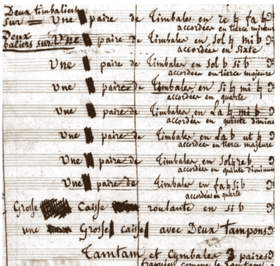 Deux timbaliers
sur — Une paire de Timbales en ré ♮ fa ♮
accordées en tierce mineure
Deux
baliers sur Une paire de Timbales en sol ♮ mi ♮
accordées en sixte
Une paire de Timbales en sol ♮ si ♮
accordées en tierce majeure
Une paire de Timbales en si ♮ mi ♮
accordées en quarte
Une paire de Timbales en la ♮ mi ♮
accordées en quinte
Une paire de Timbales en la ♮ ut
accordées en tierce majeure
Une paire de Timbales en sol ré
accordées en quinte
Une paire de Timbales en fa si ♮
accordées en quarte
Grosse Caisse roulante en si ♮
une Grosse caisse avec Deux tampons
Tamtam et Cymbales 3 paires